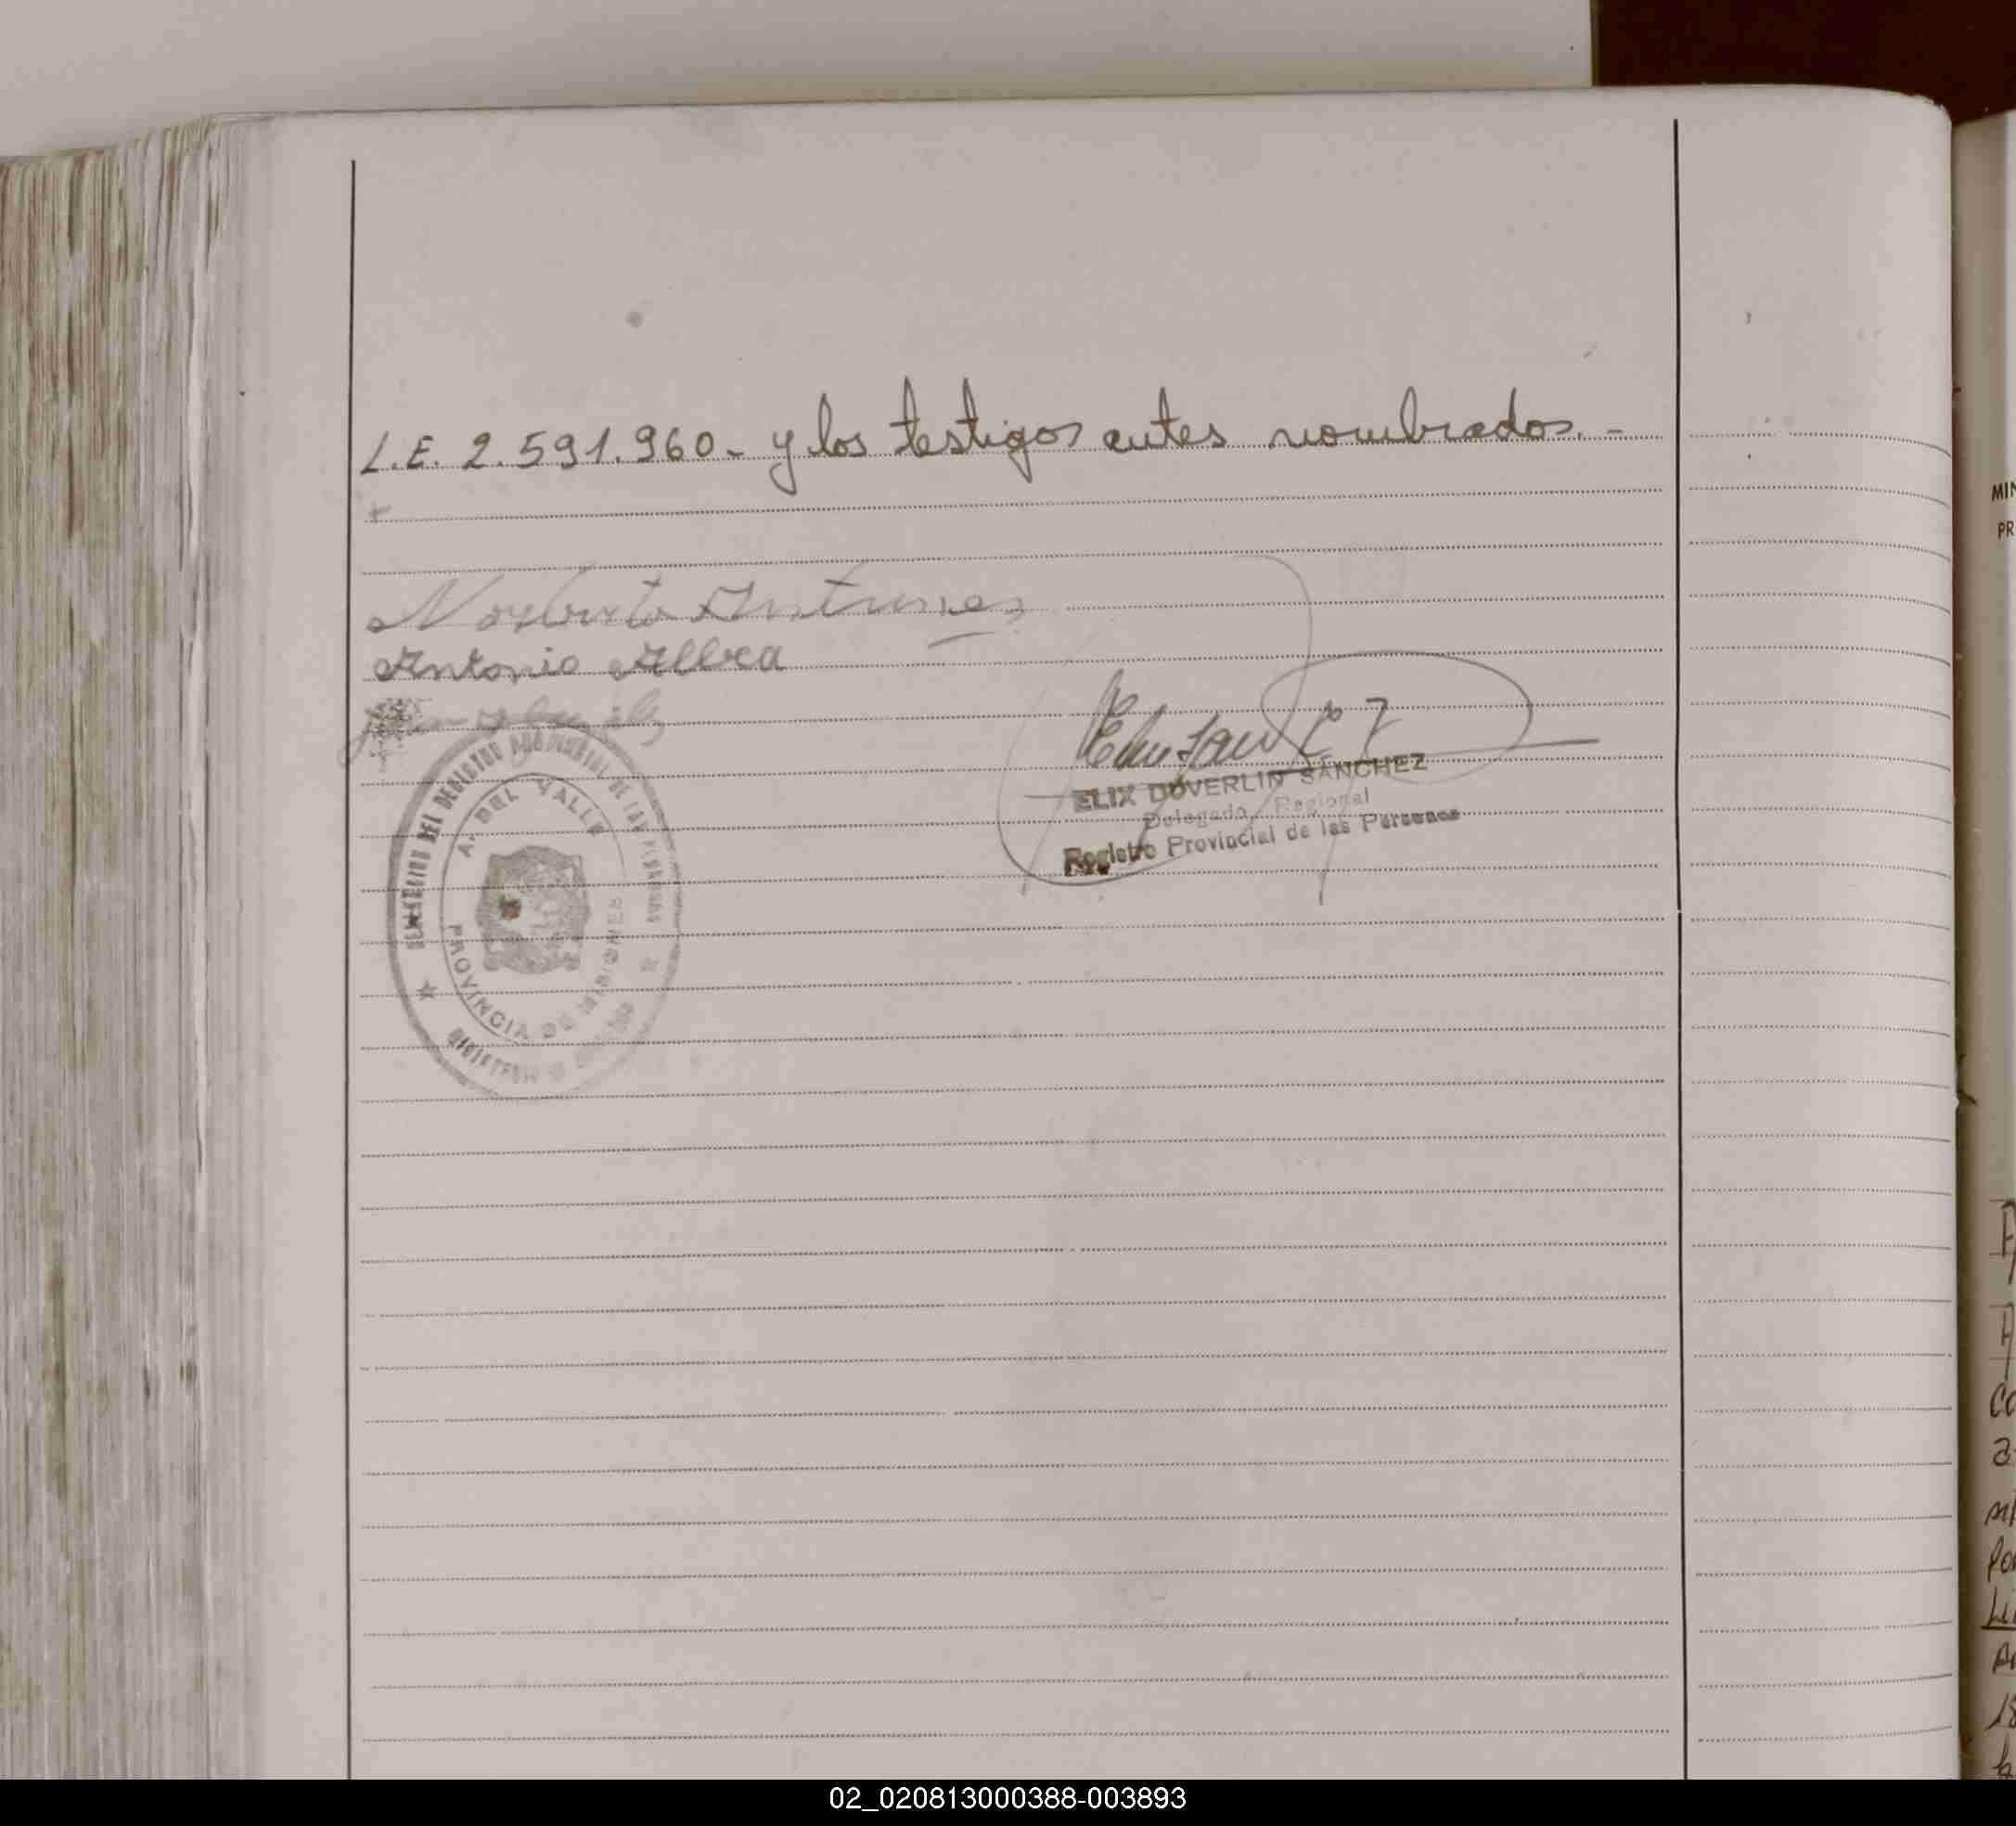 L.E. 2.591.960.- y los testigos antes nombrados.-
Norberto Antunes
Antonio Albea
ELIX DUVERLIN SANCHEZ
Delegado Regional
Registro Provincial de las Personas
DEL REGISTRO PROVINCIAL DE LAS PERSONAS
A. DEL VALLE
PROVINCIA DE
MIN
PR
02_020813000388-003893